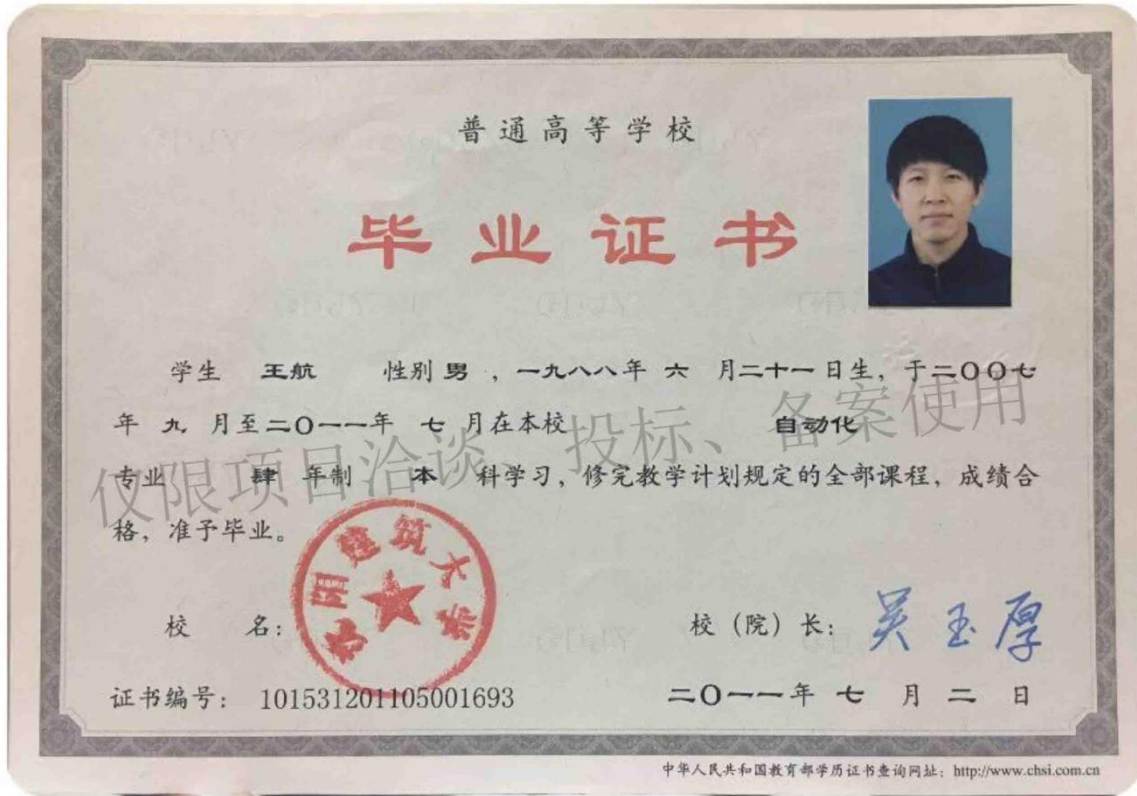 普通高等学校
毕业证书
学生 王航 性别 男 ，一九八八年 六 月二十一日生，于二〇〇七
年 九 月至二〇一一年 七 月在本校 自动化
专业 肆 年制 本 科学习，修完教学计划规定的全部课程，成绩合
格，准予毕业。
仅限项目洽谈、投标、备案使用
沈阳建筑大学
校 名： 校（院）长： 吴玉厚
证书编号： 101531201105001693 二〇一一年 七 月 二 日
中华人民共和国教育部学历证书查询网址：http://www.chsi.com.cn